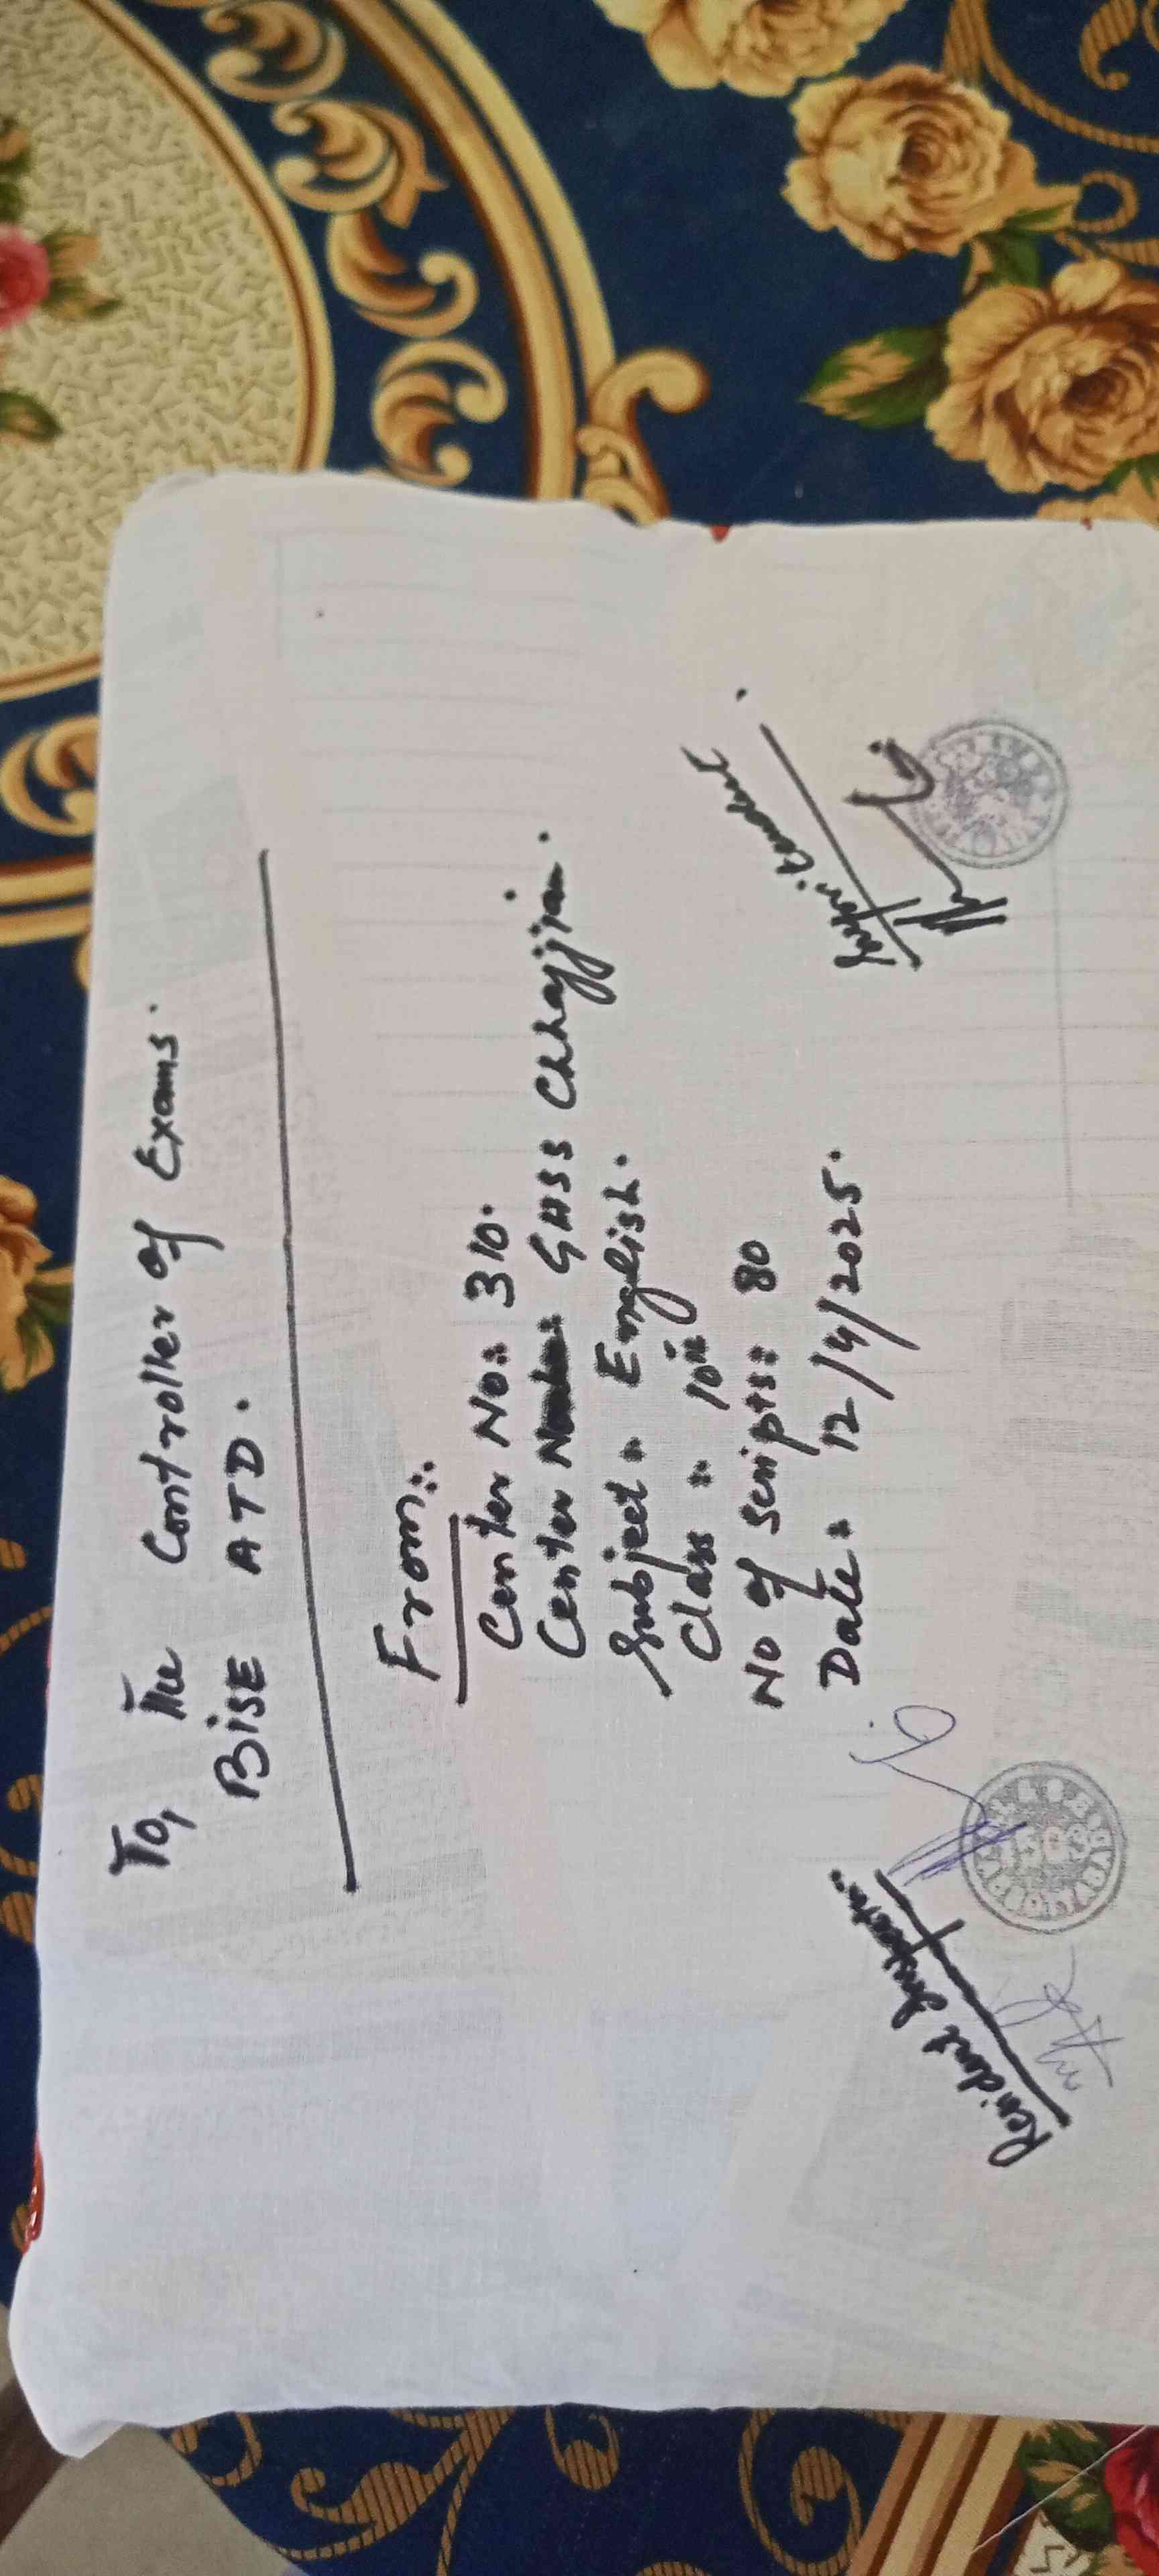 To, The Controller of Exams.
BISE ATD.
From::
Center No:: 310.
Center Name:: GHSS Chhajjian.
Subject:: English.
Class :: 10th
No of scripts:: 80
Date:: 12/4/2025.
Resident Inspector